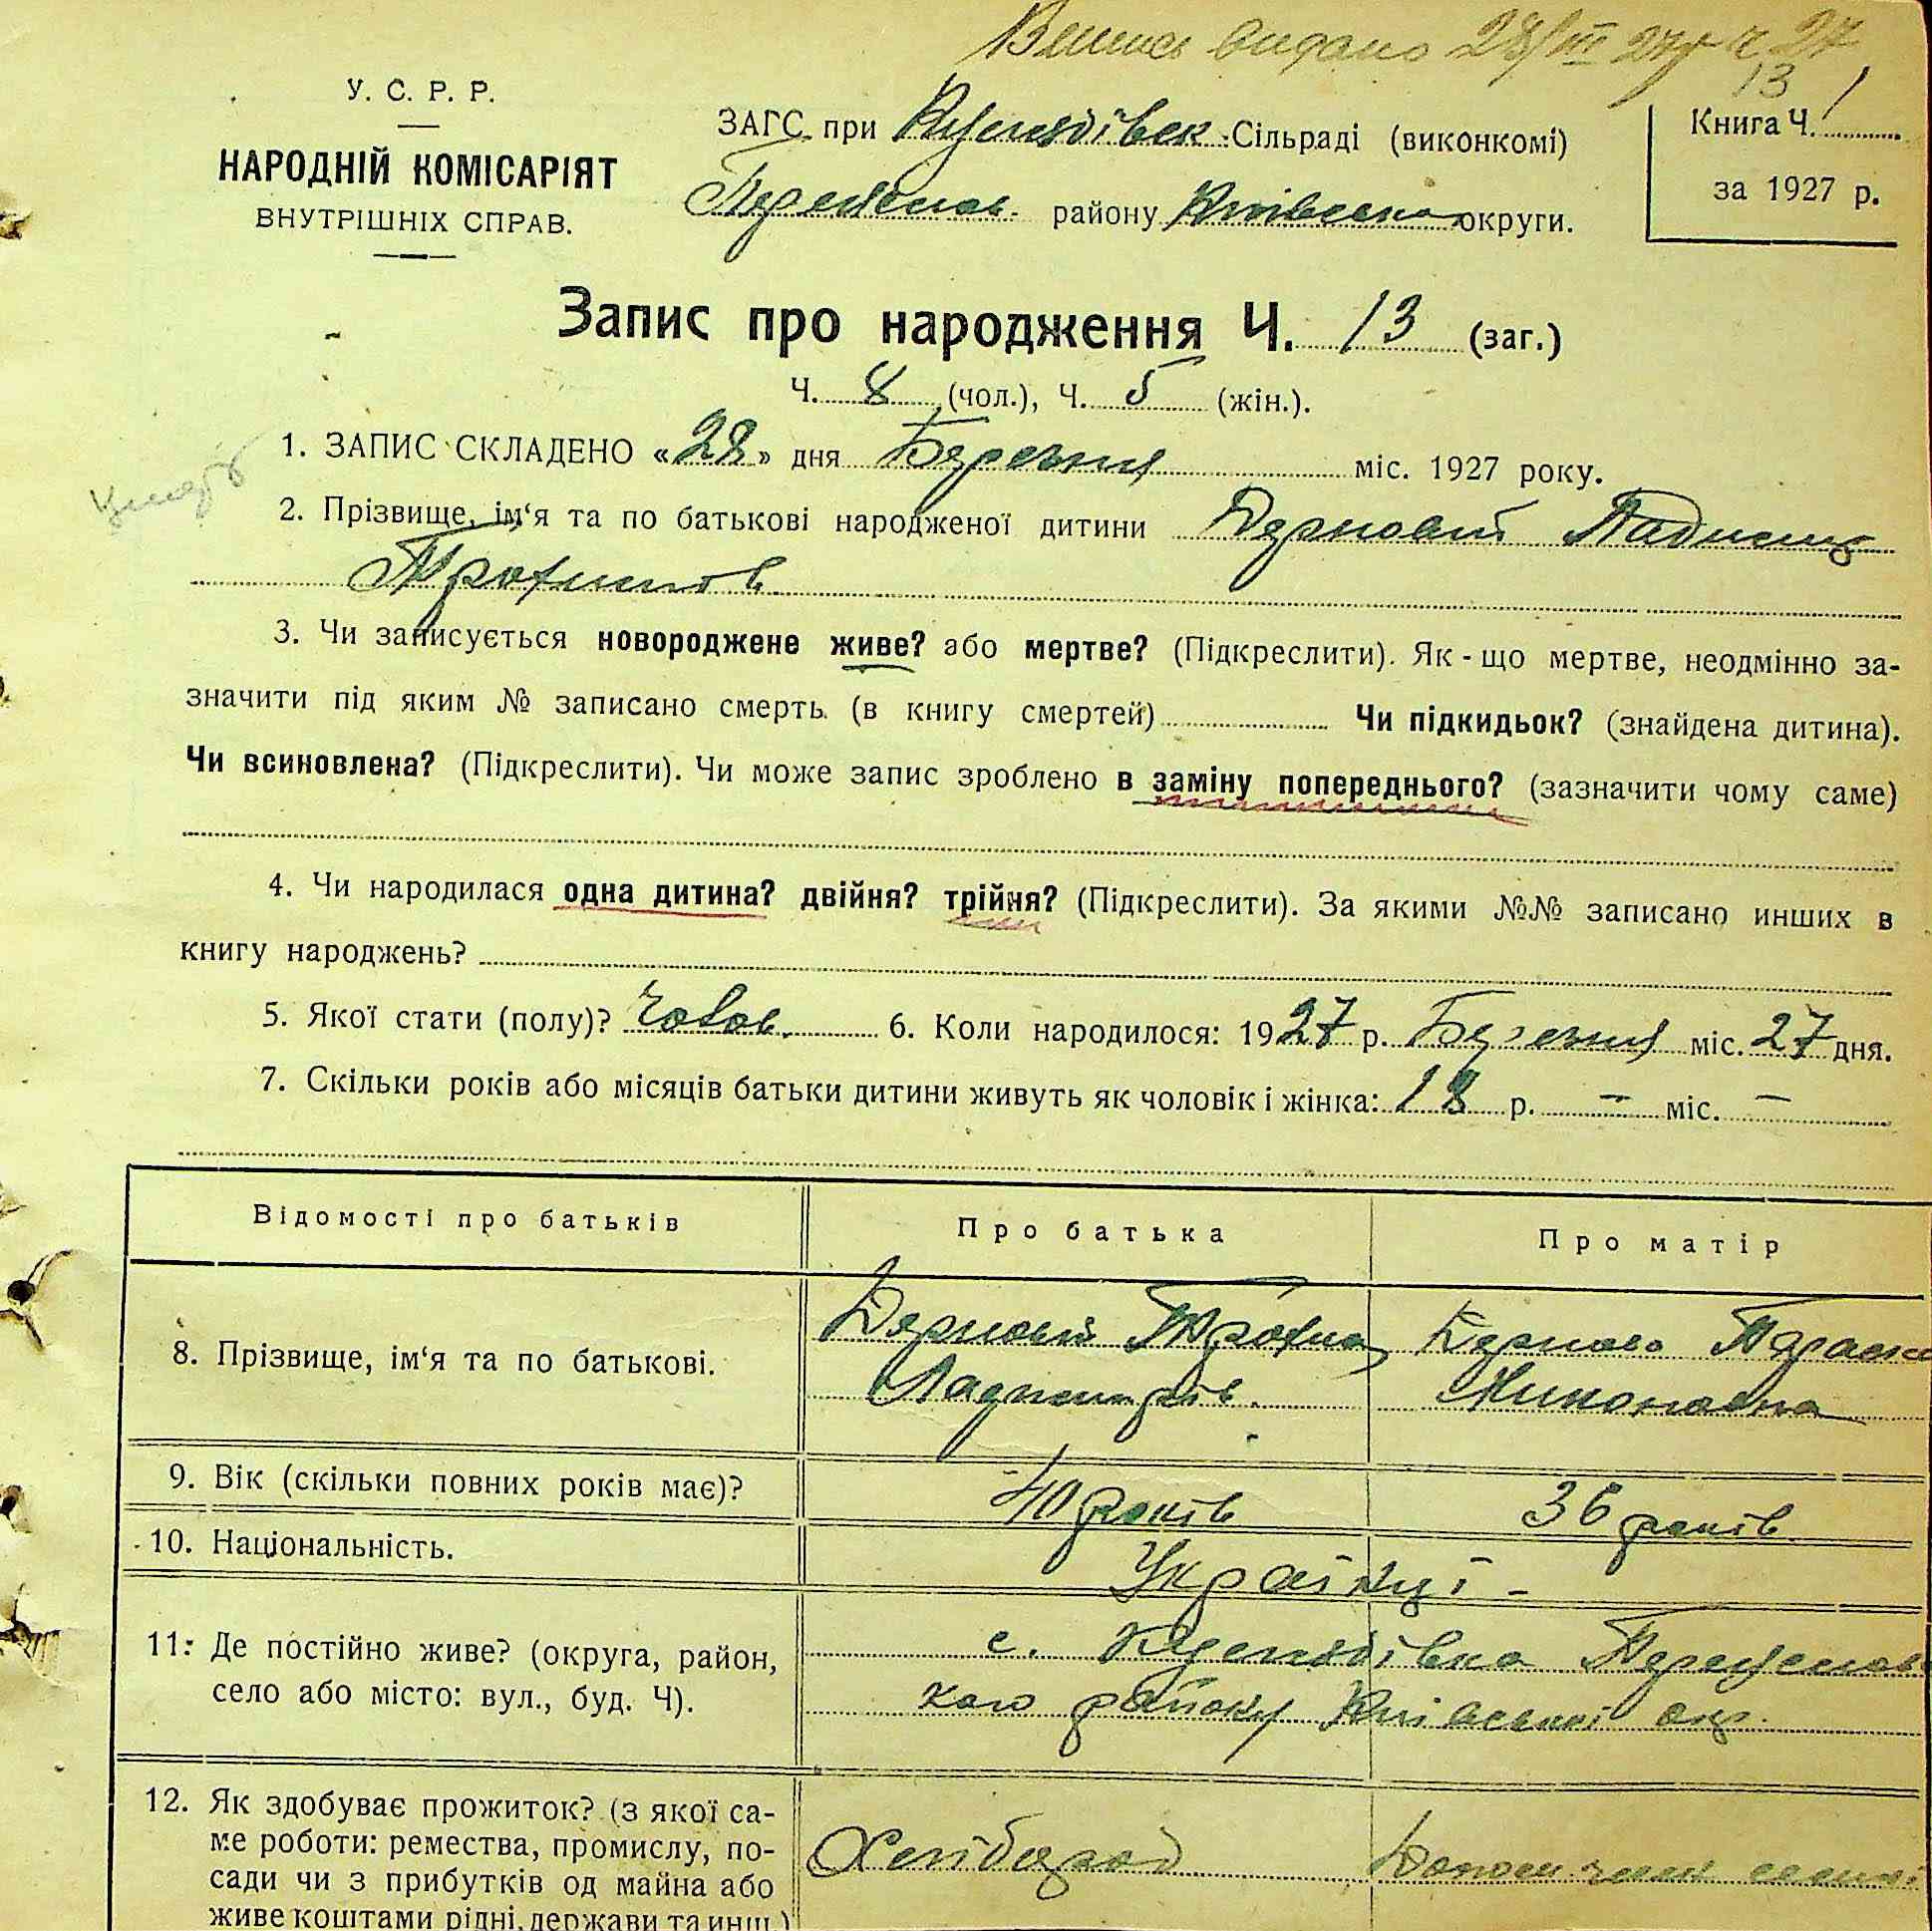 Випись видано 28/III 27 р ч 27
13
У. С. Р. Р.
НАРОДНІЙ КОМІСАРІЯТ
ВНУТРІШНІХ СПРАВ.
ЗАГС при Сільраді (виконкомі)
району Київської округи.
Книга Ч. 1
за 1927 р.
Запис про народження Ч. 13 (заг.)
Ч. 8 (чол.), Ч. 5 (жін.).
1. ЗАПИС СКЛАДЕНО «28» дня Березня міс. 1927 року.
2. Прізвище, ім‘я та по батькові народженої дитини Дерновий
Трохимов.
3. Чи записується новороджене живе? або мертве? (Підкреслити). Як-що мертве, неодмінно за-
значити під яким № записано смерть (в книгу смертей) Чи підкидьок? (знайдена дитина).
Чи всиновлена? (Підкреслити). Чи може запис зроблено в заміну попереднього? (зазначити чому саме)
4. Чи народилася одна дитина? двійня? трійня? (Підкреслити). За якими №№ записано инших в
книгу народжень?
5. Якої стати (полу)? Чолов. 6. Коли народилося: 1927 р. Березня міс. 27 дня.
7. Скільки років або місяців батьки дитини живуть як чоловік і жінка: 18 р. — міс. —
Відомості про батьків
Про батька
Про матір
8. Прізвище, ім‘я та по батькові.
Дерновий Трохим
Дернова Параска
9. Вік (скільки повних років має)?
40 років
36 років
10. Національність.
Українці -
11. Де постійно живе? (округа, район,
село або місто: вул., буд. Ч).
с.
кого району Київської окр.
12. Як здобуває прожиток? (з якої са-
ме роботи: ремества, промислу, по-
сади чи з прибутків од майна або
живе коштами рідні, держави та инш.)
Хлібороб